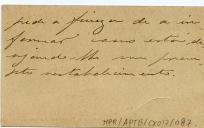 pede a fineza de a in
formar como está de
saúde. Lhe um prom
pto restabelecimento.
MPR/APTB/Cx017/087.